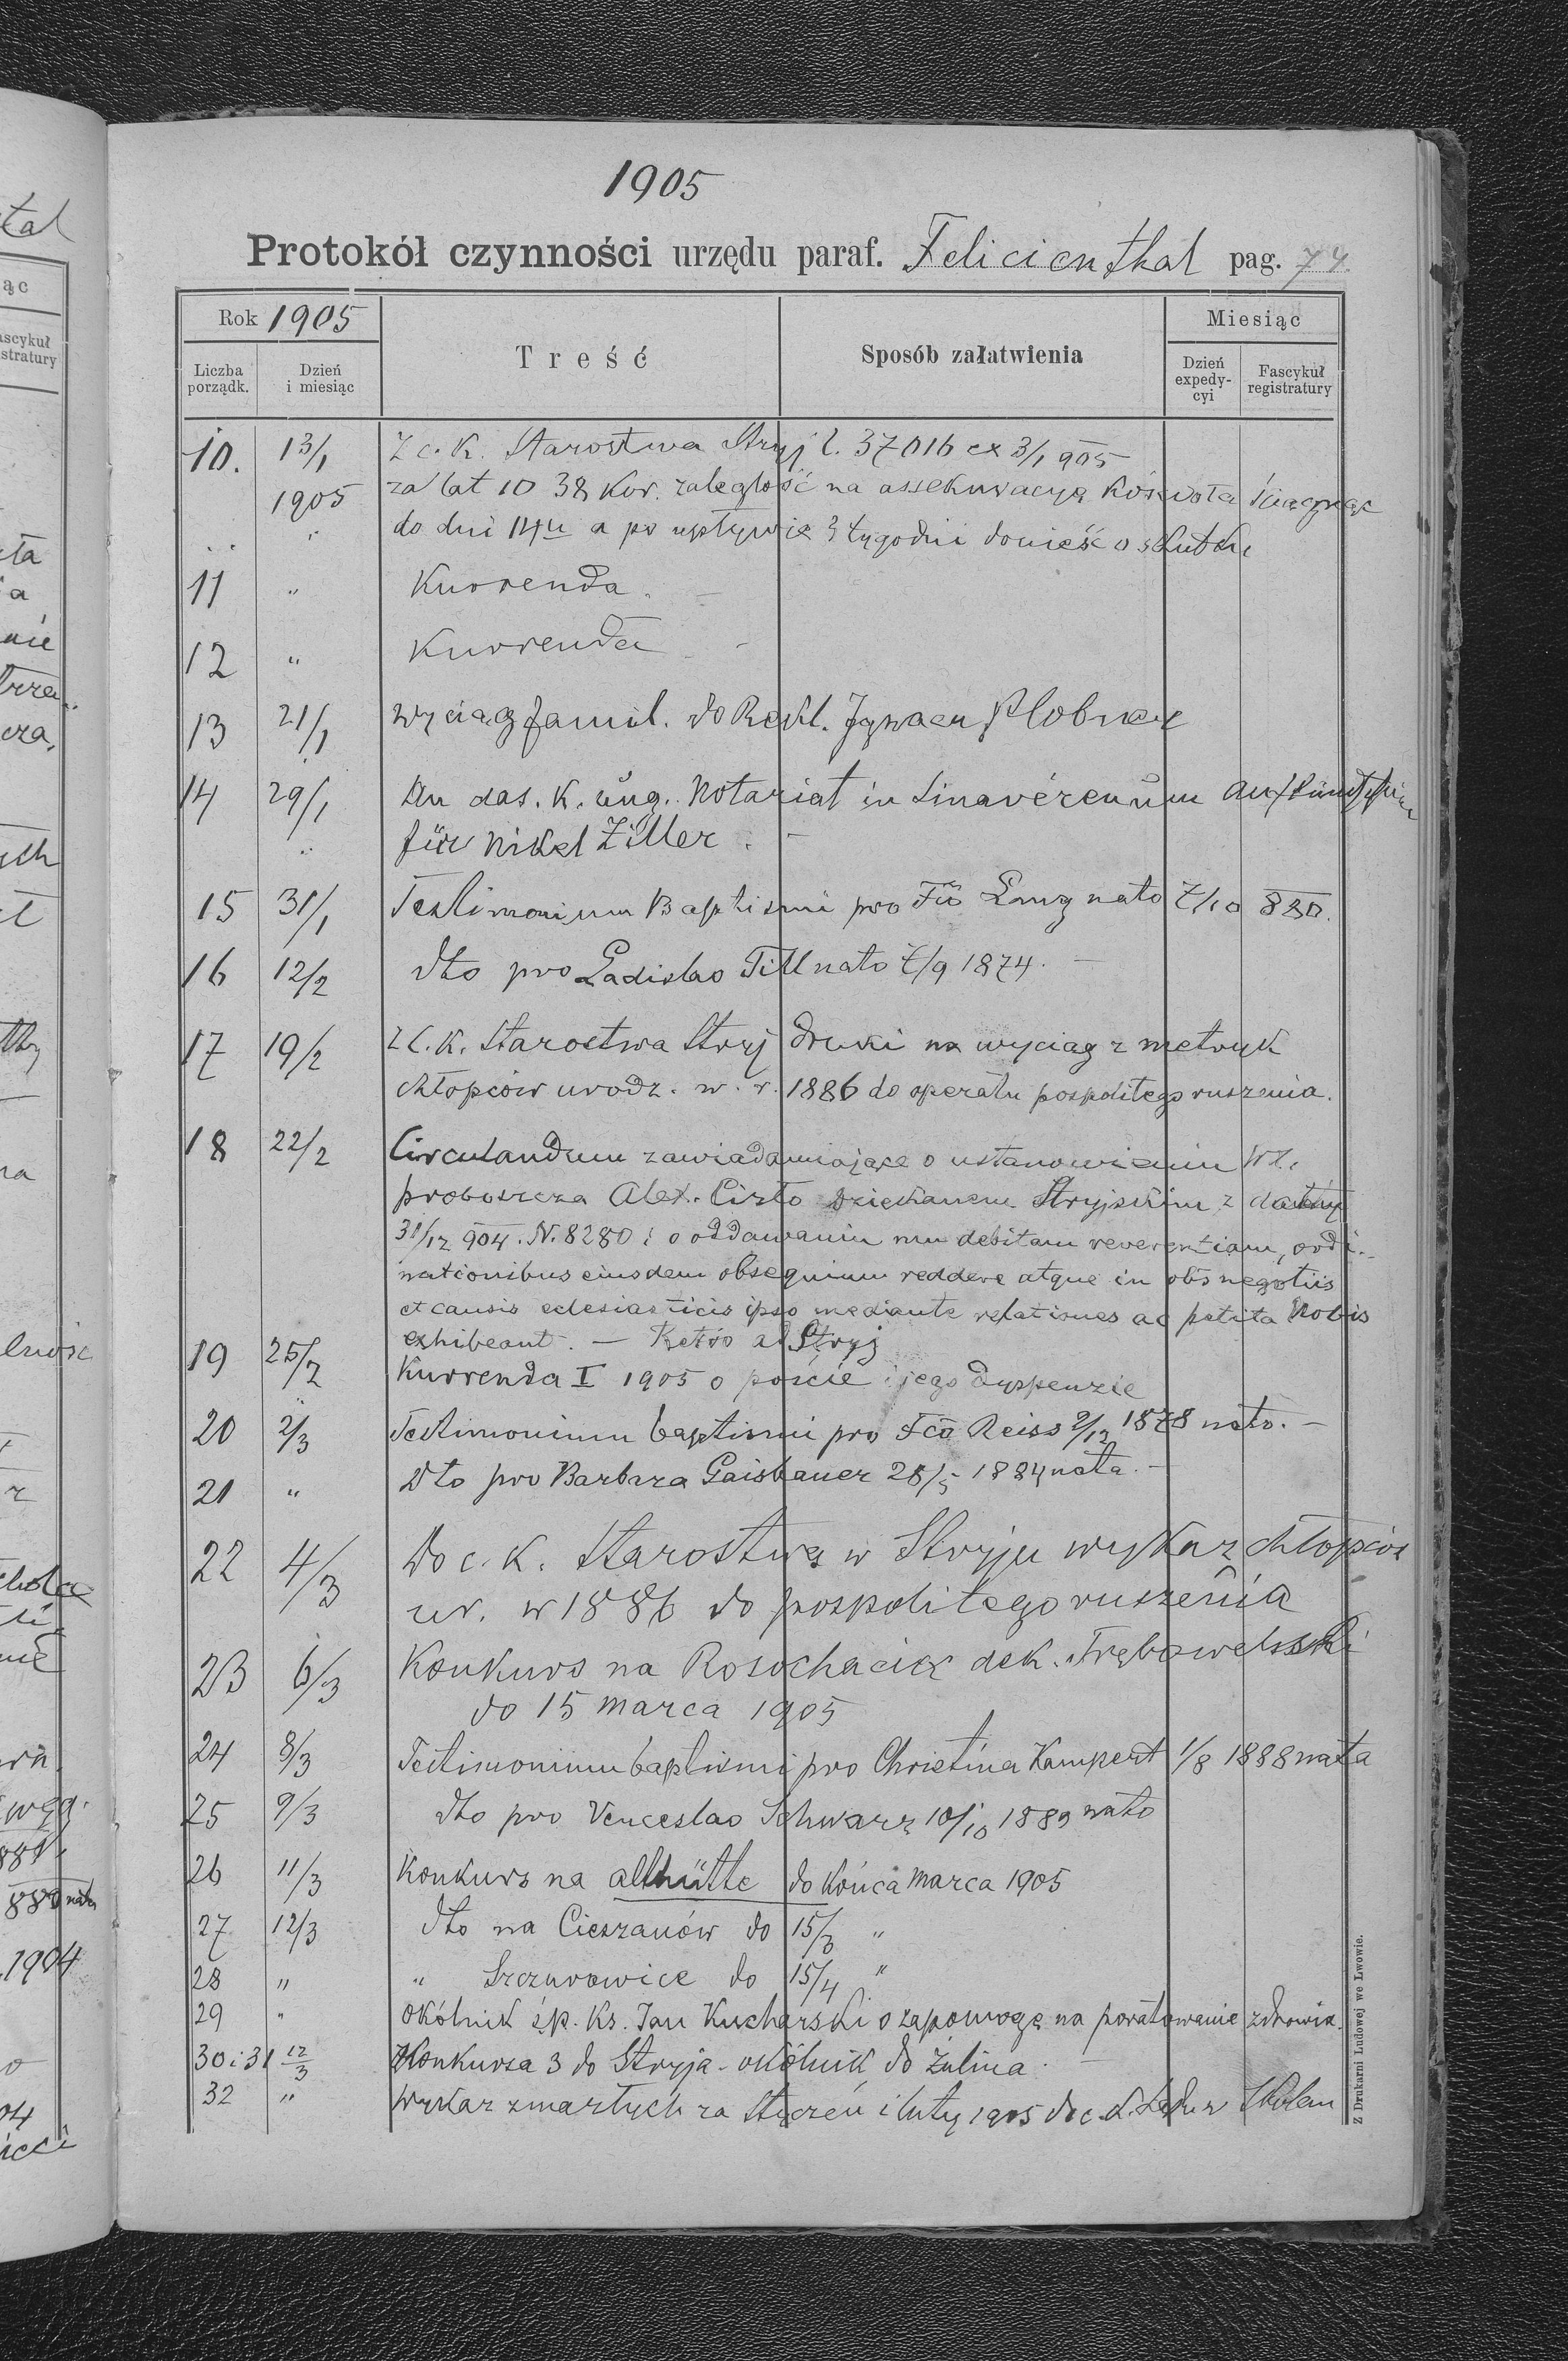 1905
Protokół czynności urzędu paraf. Felicienthal pag. 74.
Rok 1905
Miesiąc
Liczba porządk.
Dzień i miesiąc
Treść
Sposób załatwienia
Dzień expedycyi
Fascykuł registratury
10. 13/1 Z c. k. Starostwa Stryj l. 37016 ex 3/1 905
1905 za lat 10 38 kor. zaległość na assekuracyą kościoła ściągnąć
" do dni 14u a po upływie 3 tygodni donieść o skutku
11 " Kurrenda. –
12 " Kurrenda –
13 21/1 wyciąg famil. do Rekl.
14 29/1 An das. k. ung. Notariat in
" für Nikel Ziller. –
15 31/1 Testimonium Baptismi pro nato 7/10 880.
16 12/2 dto pro Ladislao Till nato 7/9 1874. –
17 19/2 z c. k. Starostwa Stryj druki na wyciąg z metryk
chłopców urodz. w. r. 1886 do operatu pospolitego ruszenia.
18 22/2 Circulandum zawiadamiające o ustanowieniu Wł.
proboszcza Alex. Cisło dziekanem Stryjskim z
31/12 904. N. 8280 i o oddawaniu mu debitam reverentiam, ordi-
nationibus eiusdem obsequium reddere atque in obs negotiis
et causis eclesiasticis ipso mediante relationes ac petita Nobis
exhibeant. – Retro ad Stryj
19 25/2 Kurrenda I 1905 o poście i jego dyspenzie
20 2/3 Testimonium baptismi pro Fco Reiss 9/12 1878 nato. –
21 " dto pro Barbara Gaisbauer 28/5 1884 nata. –
22 4/3 Do c. k. Starostwa w Stryju wykaz chłopców
ur. w 1886 do pospolitego ruszenia
23 6/3 Konkurs na Rosochaciec dek. Trębowelski
do 15 marca 1905
24 8/3 Testimonium baptismi pro Christina Kampert 1/8 1888 nata
25 9/3 dto pro Venceslao Schwarz 10/10 1889 nato
26 11/3 Konkurs na althütte do końca marca 1905
27 12/3 dto na Cieszanów do 15/3 "
28 " " Szczurowice do 15/4 "
29 " okólnik śp. ks. Jan Kucharski o zapomogę na poratowanie zdrowia.
30 i 31 12/3 Konkursa 3 do Stryja – okólnik do Żulina. –
32 " Wykaz zmarłych za Styczeń i luty 1905 do c. k. Sądu w Skolem
Z Drukarni Ludowej we Lwowie.